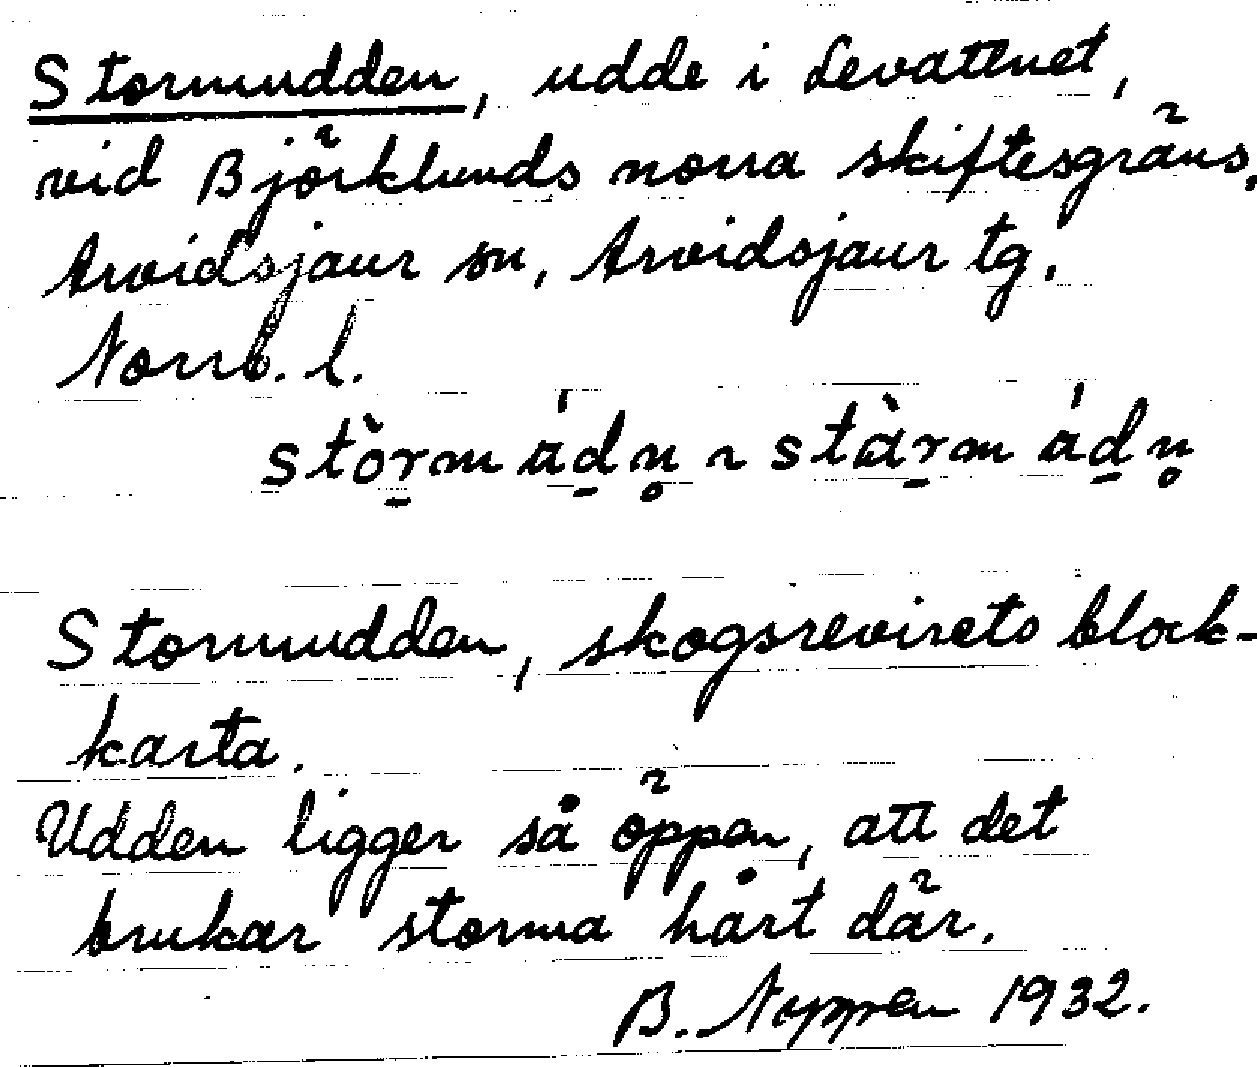 Stormudden, udde i Levattnet,
vid Björklunds norra skiftesgräns,
Arvidsjaur sn, Arvidsjaur tg.
Norrb. l.
stòrmádn̥ ~ stàrmádn̥
Stormudden, skogsrevirets block-
karta.
Udden ligger så öppen, att det
brukar storma hårt där.
B. Noppen 1932.